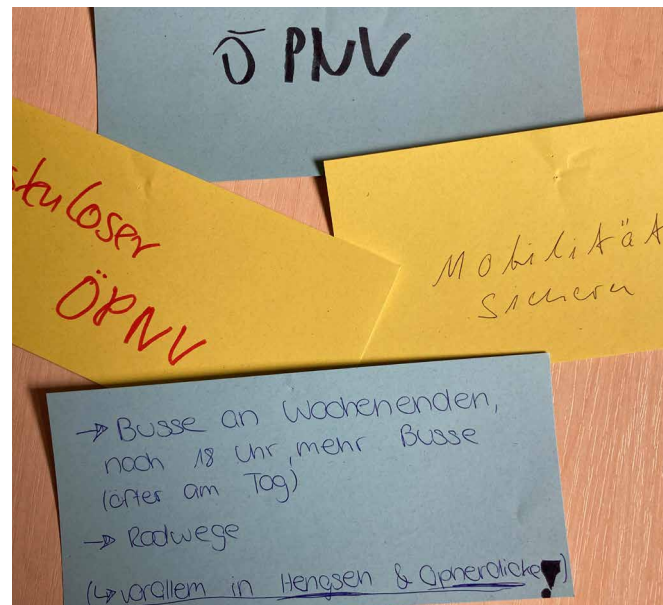 ÖPNV
stenloser
ÖPNV
Mobilität
sichern
→ Busse an Wochenenden,
nach 18 Uhr, mehr Busse
(öfter am Tag)
→ Radwege
(↳ vorallem in Hengsen & Opherdicke!)